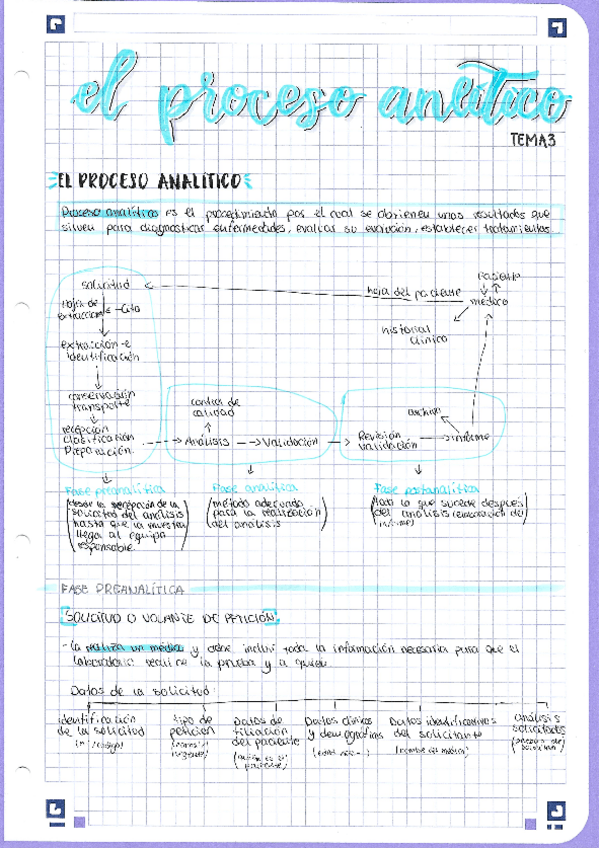 el proceso analítico
TEMA3
EL PROCESO ANALÍTICO
Proceso analítico es el procedimiento por el cual se obtienen unos resultados que
sirven para diagnosticar enfermedades, evaluar su evolución, establecer tratamientos.
Paciente
solicitud
hoja del paciente
médico
Hoja de
extracciones
Cita
historial
clínico
extracción e
identificación
conservación
transporte
control de
calidad
archivo
recepción
clasificación
Preparación.
Análisis
Validación
Revisión
validación
informe
Fase preanalítica
Fase analítica
Fase postanalítica
desde la recepción de la
solicitud del análisis
hasta que la muestra
llega al equipo
responsable
método adecuado
para la realización
del análisis
todo lo que sucede después
del análisis
FASE PREANALÍTICA
SOLICITUD O VOLANTE DE PETICIÓN.
- La realiza un médico y debe incluir toda la información necesaria para que el
laboratorio realice la prueba y a quien.
Datos de la solicitud:
identificación
de la solicitud
(nº/código)
tipo de
petición
Datos de
filiación
del paciente
Datos clínicos
y demográficos
Datos identificativos
del solicitante
(nombre del médico)
análisis
solicitados